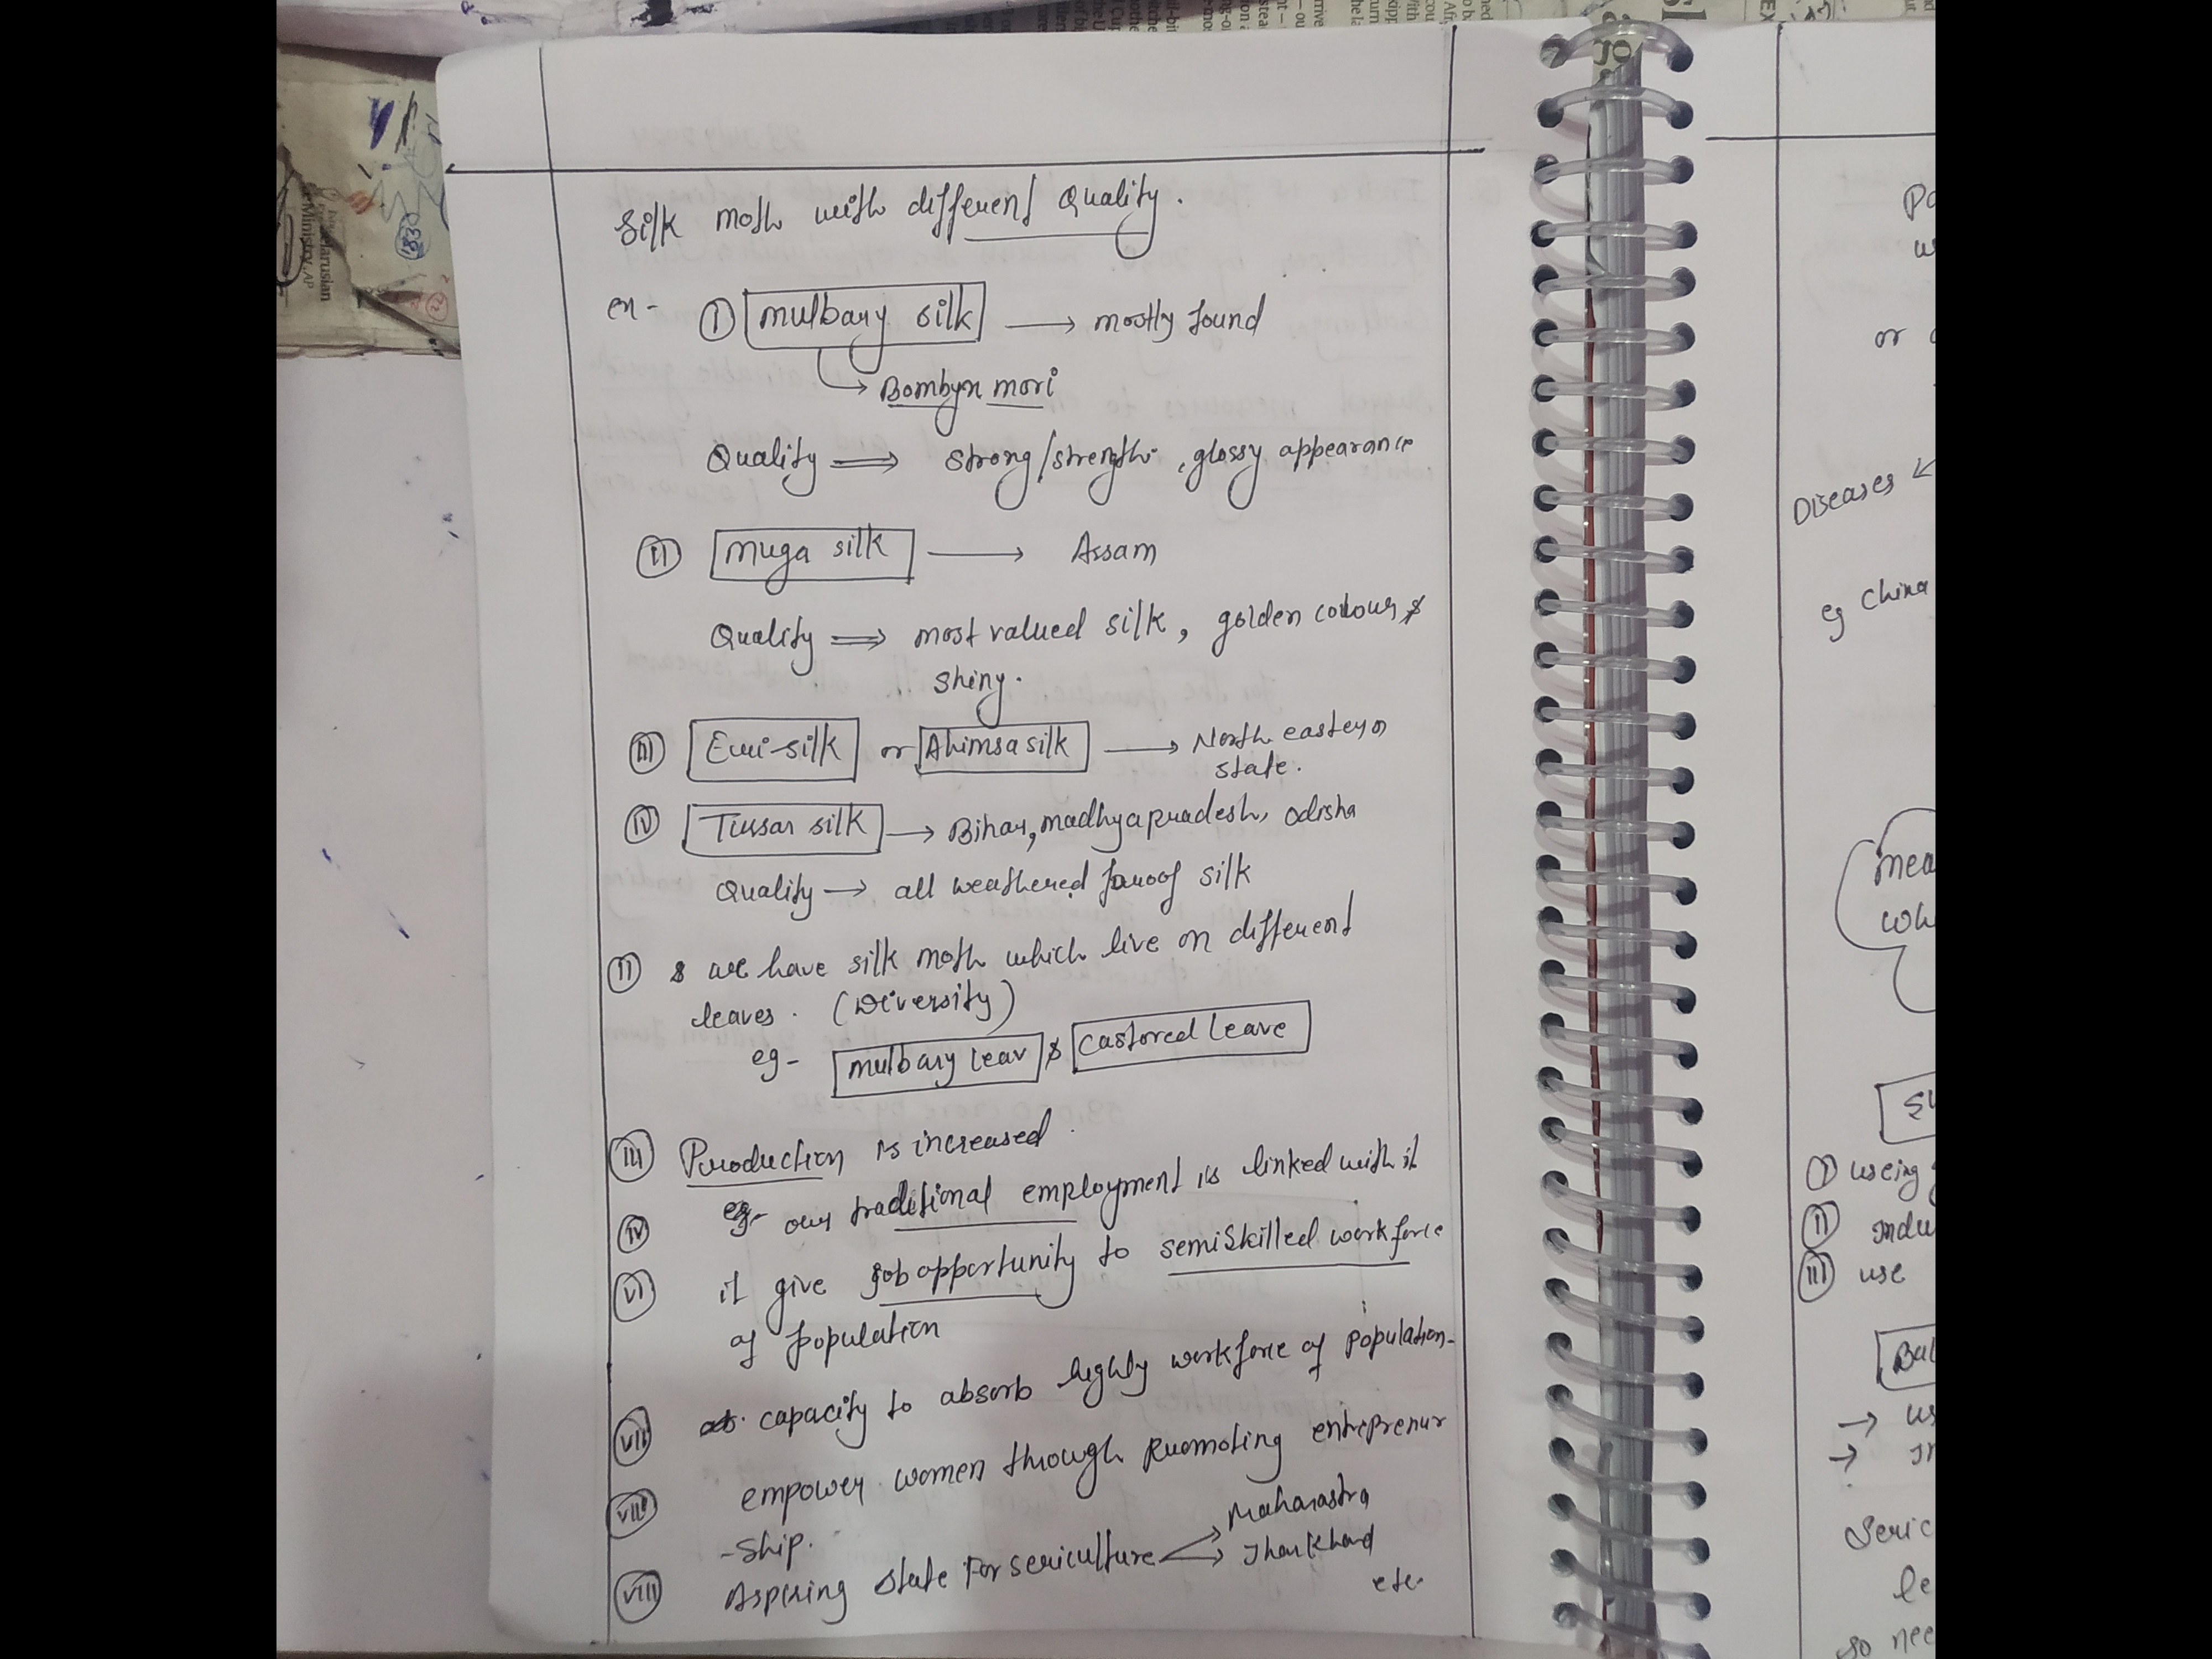 Silk moth with different Quality.
ex- (I) mulbary silk → mostly found
→ Bombyx mori
Quality ⇒ strong/strength, glossy appearance
(II) muga silk → Assam
Quality ⇒ most valued silk, golden colour &
shiny.
(III) Eri-silk or Ahimsa silk → North eastern
state.
(IV) Tussar silk → Bihar, madhya pradesh, odisha
Quality → all weathered proof silk
(II) & we have silk moth which live on different
leaves. (Diversity)
eg- mulbary leav & castored leave
(III) Production is increased.
(IV) eg- our traditional employment is linked with it
(VI) it give job opportunity to semiskilled workforce
of population
(VII) capacity to absorb highly workforce of population-
(VII) empower women through promoting entreprenur
-ship.
(VIII) Aspiring state for sericulture → Maharastra
→ Jharkhand
etc.
Diseases
eg China
or
(I) useing
(II) indu
(III) use
Seric
so nee
Ministry, AP